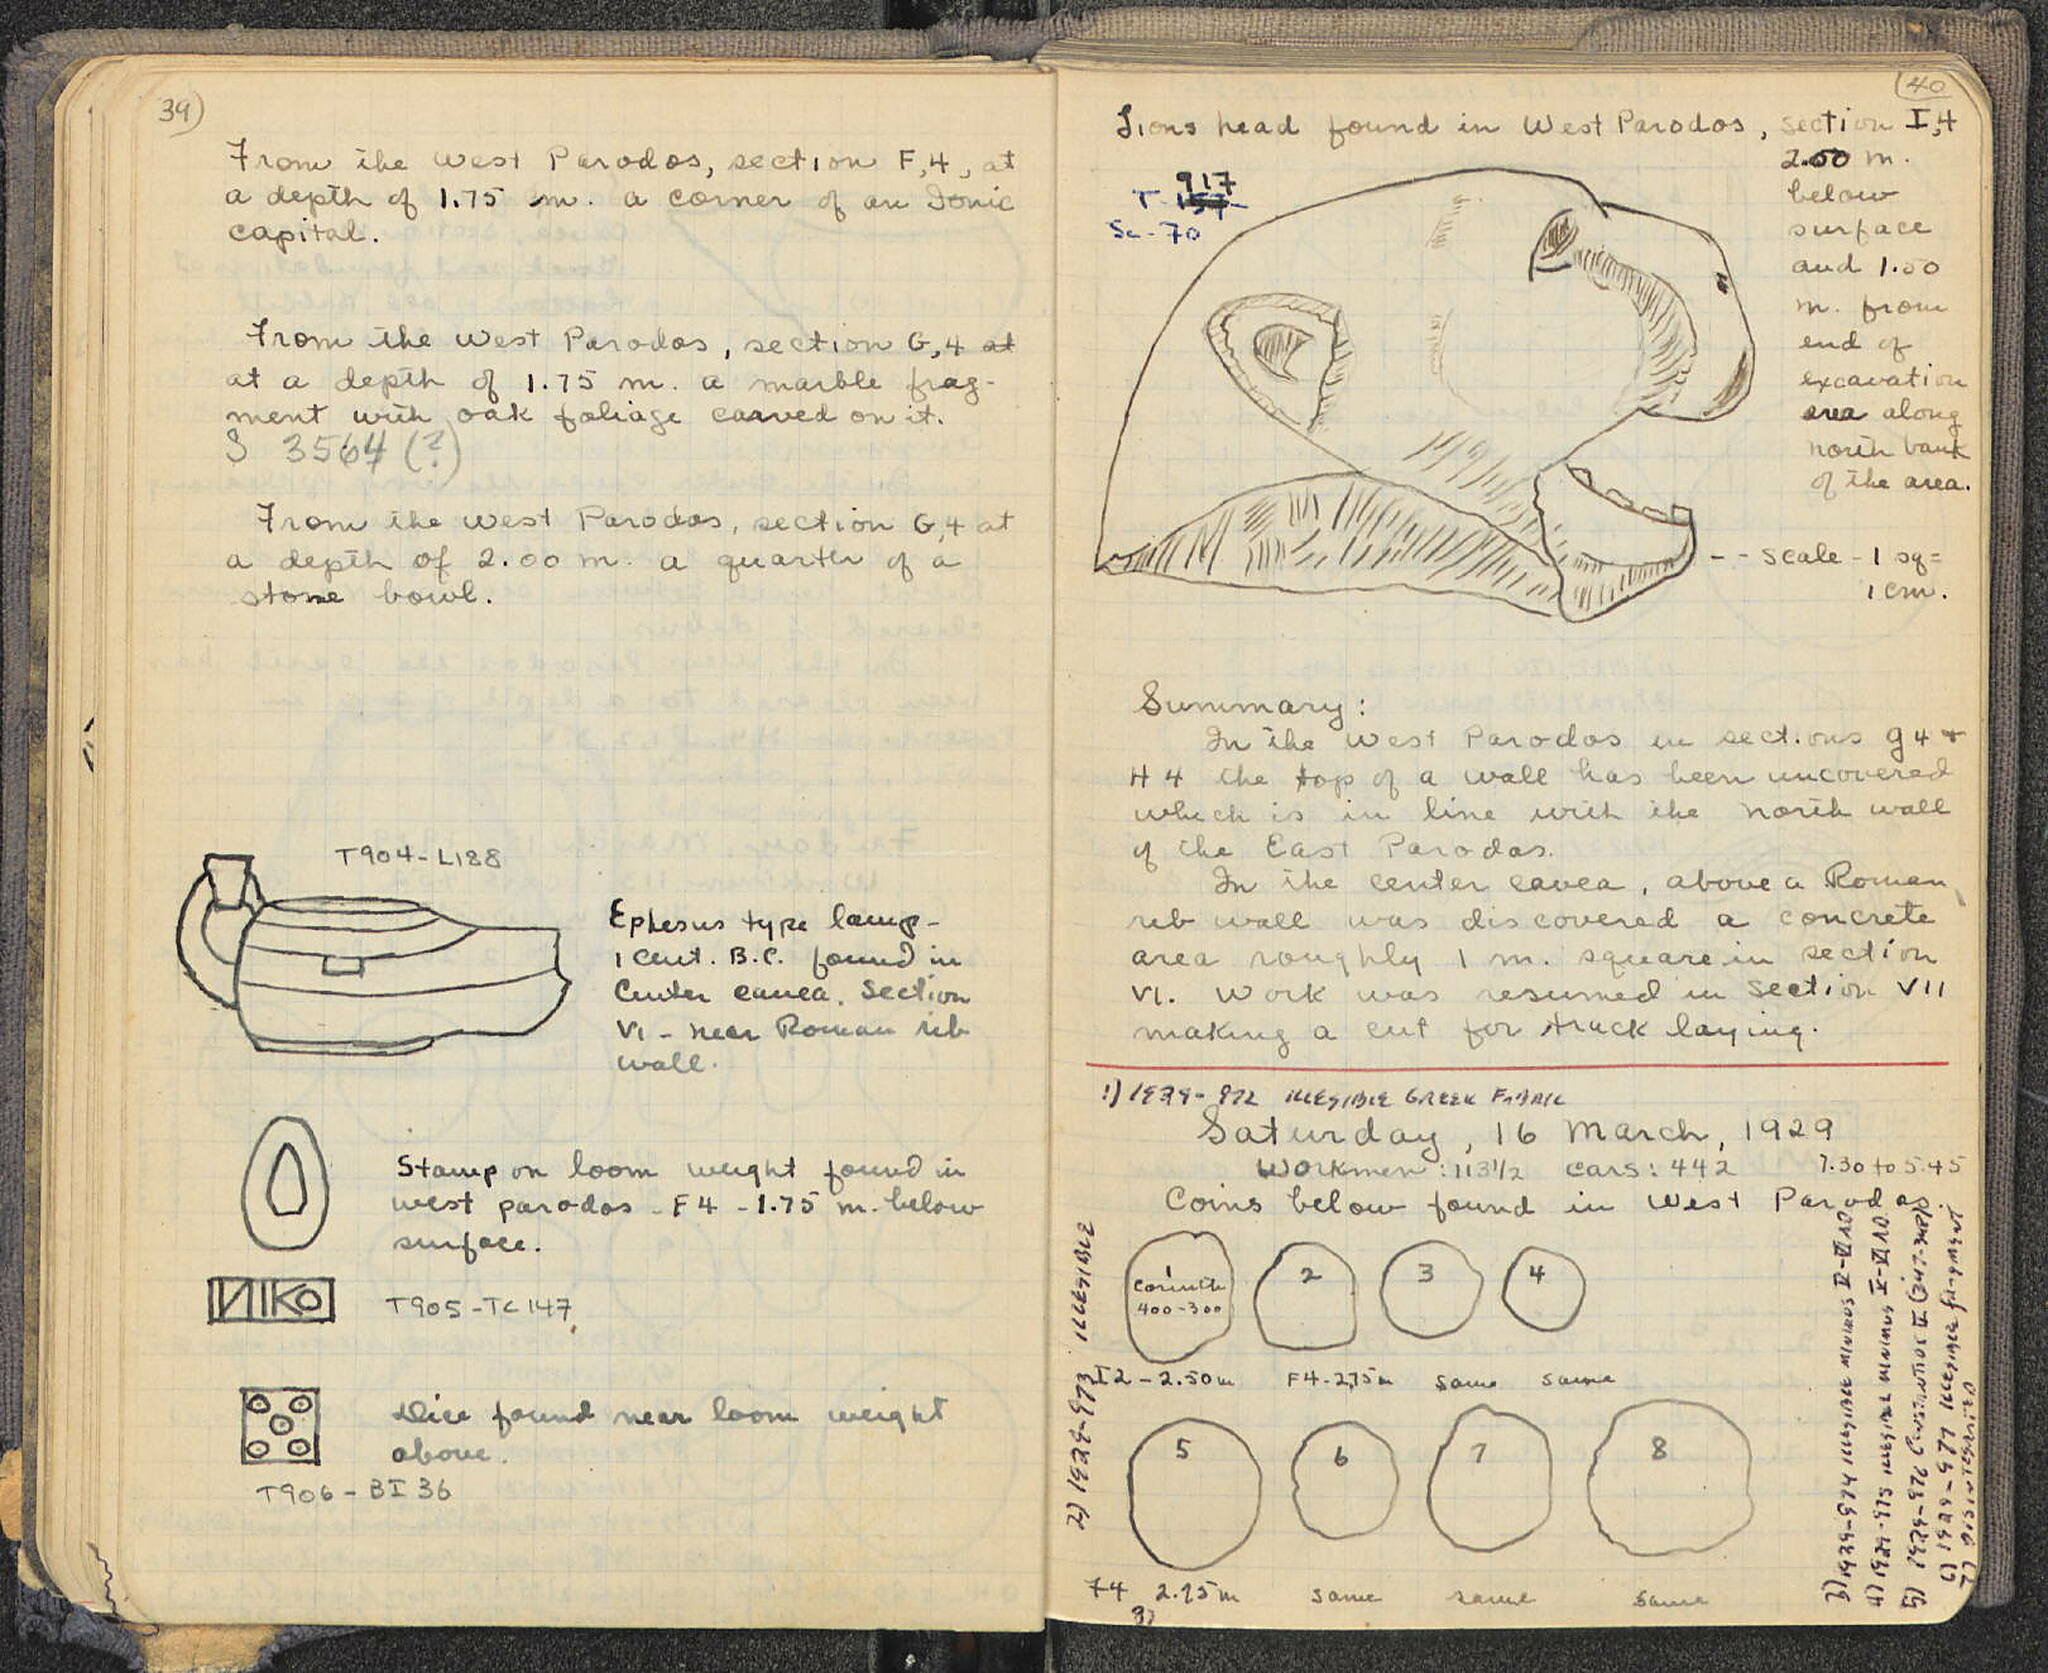 39)
From the West Parodos, section F,4, at
a depth of 1.75 m. a corner of an Ionic
capital.
From the West Parodos, section G,4 at
at a depth of 1.75 m. a marble frag-
ment with oak foliage carved on it.
S 3564 (?)
From the West Parodos, section G,4 at
a depth of 2.00 m. a quarter of a
stone bowl.
T904-L188
Ephesus type lamp-
1 cent. B.C. found in
Center cavea. Section
VI - near Roman rib
wall.
Stamp on loom weight found in
west parodos - F4 - 1.75 m. below
surface.
NIKO
T905-TC147
Dice found near loom weight
above.
T906-BI36
40
Lions head found in West Parodos, section I,4
2.50 m.
below
surface
and 1.50
m. from
end of
excavation
area along
north bank
of the area.
917
T-157
Sc-70
-- scale - 1 sq=
1 cm.
Summary:
In the West Parodos in sections g4 +
H4 the top of a wall has been uncovered
which is in line with the north wall
of the East Parodos.
In the center cavea, above a Roman
rib wall was discovered a concrete
area roughly 1 m. square in section
VI. Work was resumed in section VII
making a cut for track laying.
1) 1929-972 ILLEGIBLE GREEK FABRIC
Saturday, 16 March, 1929
Workmen: 113½ cars: 442 7.30 to 5.45
Coins below found in West Parodos.
1
Corinth
400-300
2
3
4
I2-2.50m F4-2.75m same same
5
6
7
8
F4 2.75m same same same
8)
2) 1929-973 ILLEGIBLE
3) 1929-974 ILLEGIBLE MINIMUS V-VI A.D.
4) 1929-975 ILLEGIBLE MINIMUS V-VI A.D.
5) 1929-976 CONSTANTIUS II
6) 1929-977 ILLEGIBLE FRAGMENT
7) DISINTEGRATED